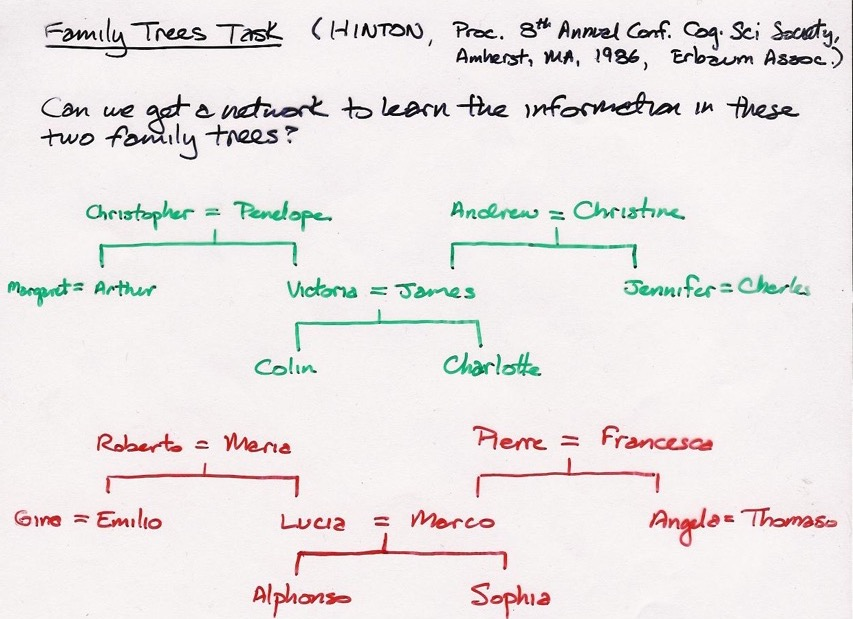 Family Trees Task (HINTON, Proc. 8th Annual Conf. Cog. Sci Society,
Amherst, MA, 1986, Erbaum Assoc.)
Can we get a network to learn the information in these
two family trees?
Christopher = Penelope Andrew = Christine
Margaret = Arthur Victoria = James Jennifer = Charles
Colin Charlotte
Roberto = Maria Pierre = Francesca
Gina = Emilio Lucia = Marco Angela = Thomaso
Alphonso Sophia